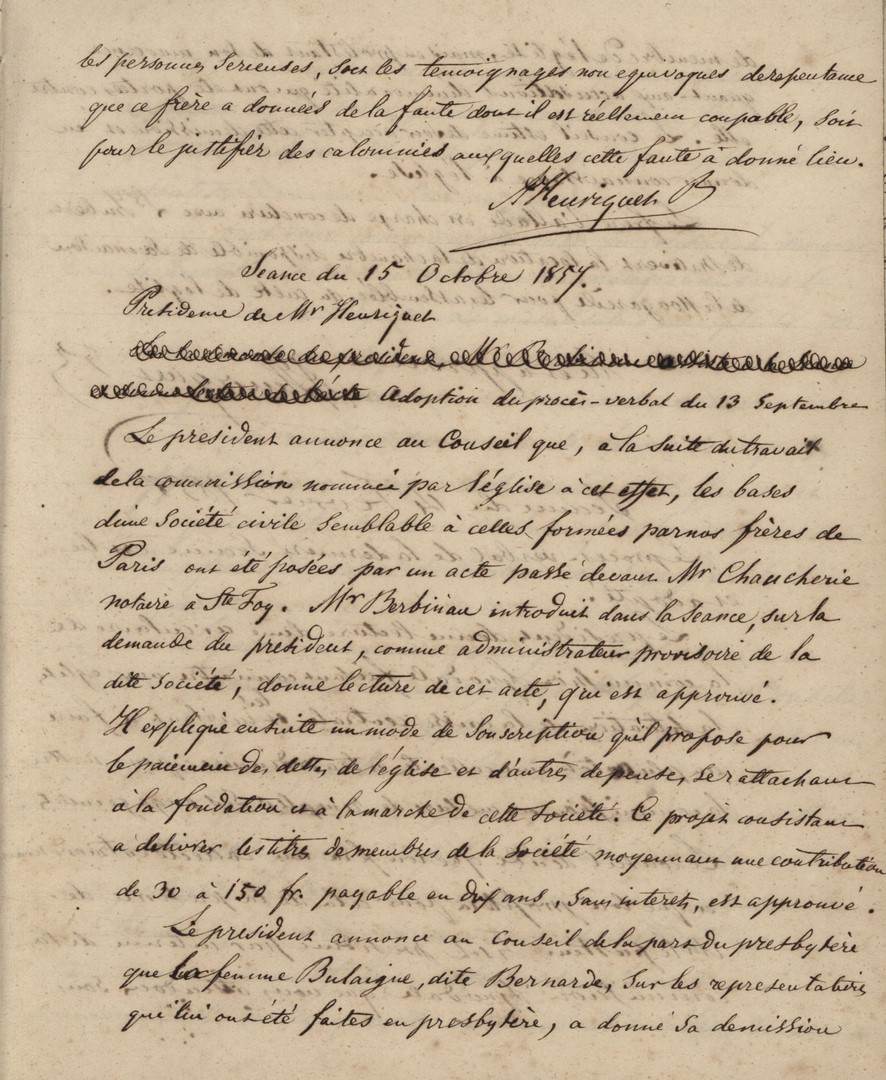 les personnes serieuses, soit les temoignages non equivoques de repentance
que ce frère a données de la faute dont il est réellement coupable, soit
pour le justifier des calomnies auxquelles cette faute a donné lieu.
A Henriquet P
Seance du 15 Octobre 1857.
Presidence de Mr Henriquet
Adoption du procès-verbal du 13 Septembre
Le president annonce au Conseil que, à la suite du travail
de la commission nommée par l'église à cet effet, les bases
d'une Société civile semblable à celles formées par nos frères de
Paris ont été posées par un acte passé devant Mr Chaucherie
notaire à Ste Foy. Mr Berbinau introduit dans la Seance, sur la
demande du president, comme administrateur provisoire de la
dite Société, donne lecture de cet acte, qui est approuvé.
Il explique ensuite un mode de Souscription qu'il propose pour
le paiement des dettes de l'église et d'autres depenses se rattachant
à la fondation et à la marche de cette Société. Ce projet consistant
à delivrer les titres de membres de la Société moyennant une contribution
de 30 à 150 fr. payable en dix ans, sans interets, est approuvé.
Le president annonce au Conseil de la part du presbytère
que la femme Bulaigue, dite Bernarde, sur les representations
qui lui ont été faites en presbytère, a donné sa demission